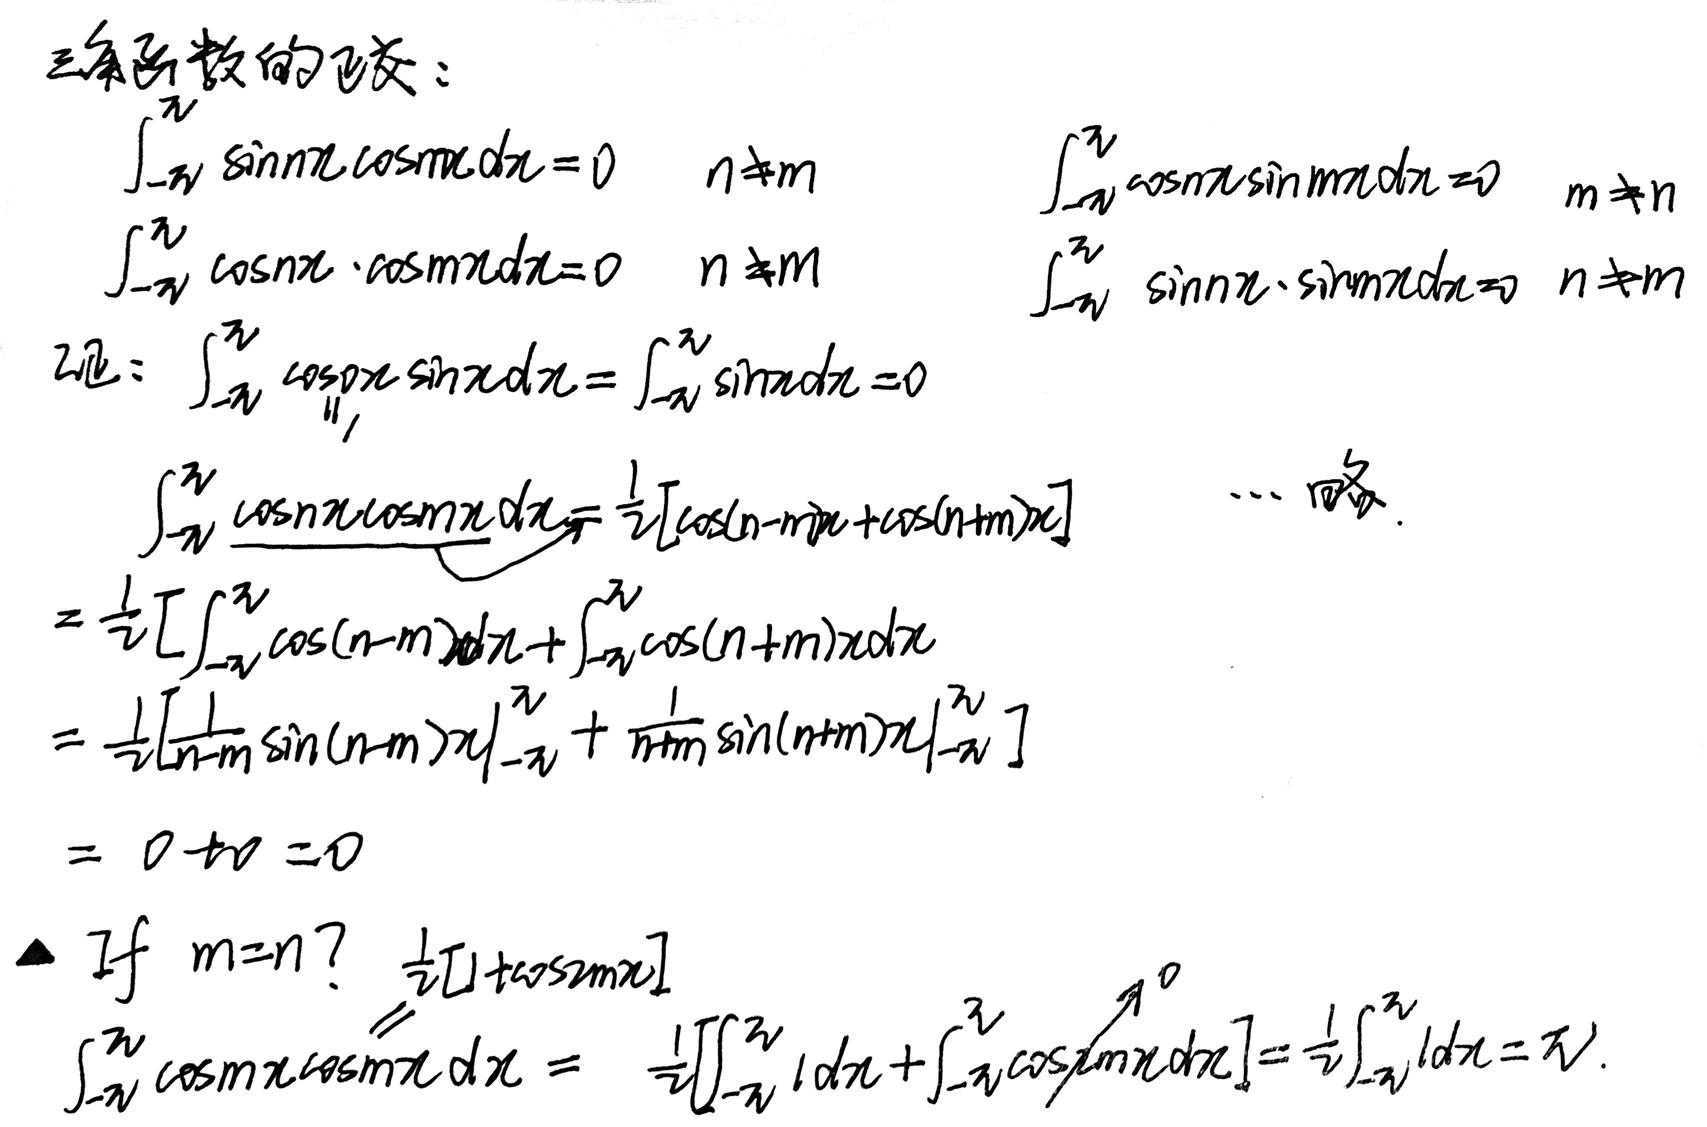 三角函数的正交:
∫_{-π}^{π} sinnx cosmx dx = 0   n≠m   ∫_{-π}^{π} cosnx sinmx dx = 0   m≠n
∫_{-π}^{π} cosnx · cosmx dx = 0   n≠m   ∫_{-π}^{π} sinnx · sinmx dx = 0   n≠m
证: ∫_{-π}^{π} cos0x sinx dx = ∫_{-π}^{π} sinx dx = 0
"1
∫_{-π}^{π} cosnx cosmx dx = 1/2 [cos(n-m)x + cos(n+m)x]   … 略.
= 1/2 [∫_{-π}^{π} cos(n-m)x dx + ∫_{-π}^{π} cos(n+m)x dx
= 1/2 [1/(n-m) sin(n-m)x |_{-π}^{π} + 1/(n+m) sin(n+m)x |_{-π}^{π} ]
= 0 + 0 = 0
▲ If m=n? 1/2 [1 + cos2mx]
∫_{-π}^{π} cosmx cosmx dx = 1/2 [∫_{-π}^{π} 1 dx + ∫_{-π}^{π} cos2mx dx] = 1/2 ∫_{-π}^{π} 1 dx = π.
0